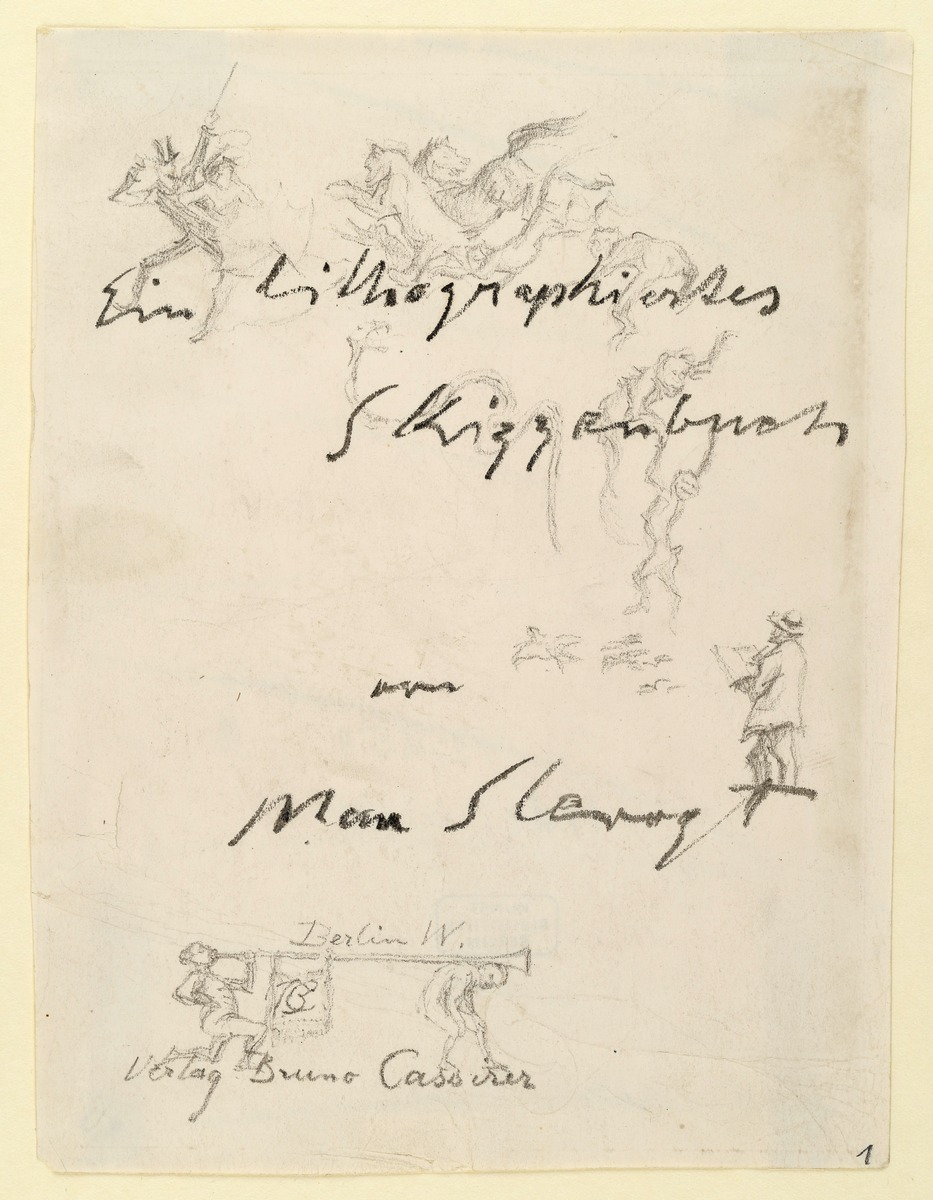 Ein lithographiertes
Skizzenbuch
von
Max Slevogt
Berlin W.
BC
Verlag Bruno Cassirer
1